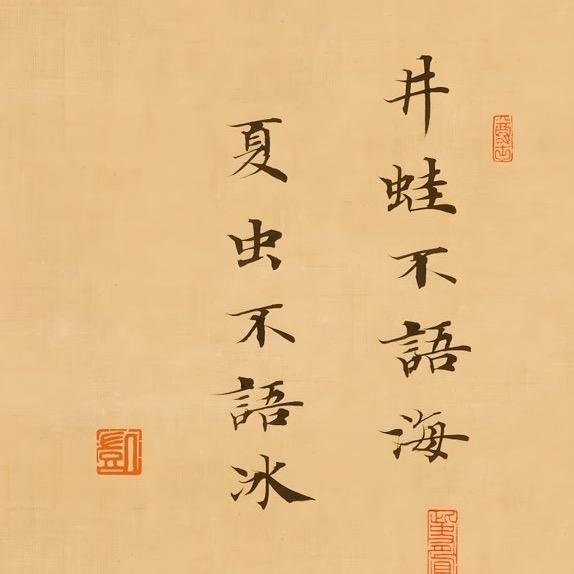 井蛙不語海
夏虫不語冰